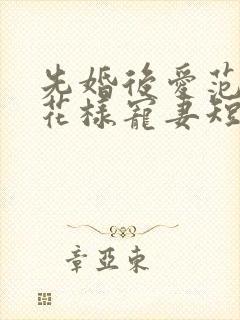 先婚後愛范
花樣寵妻短
章亞東